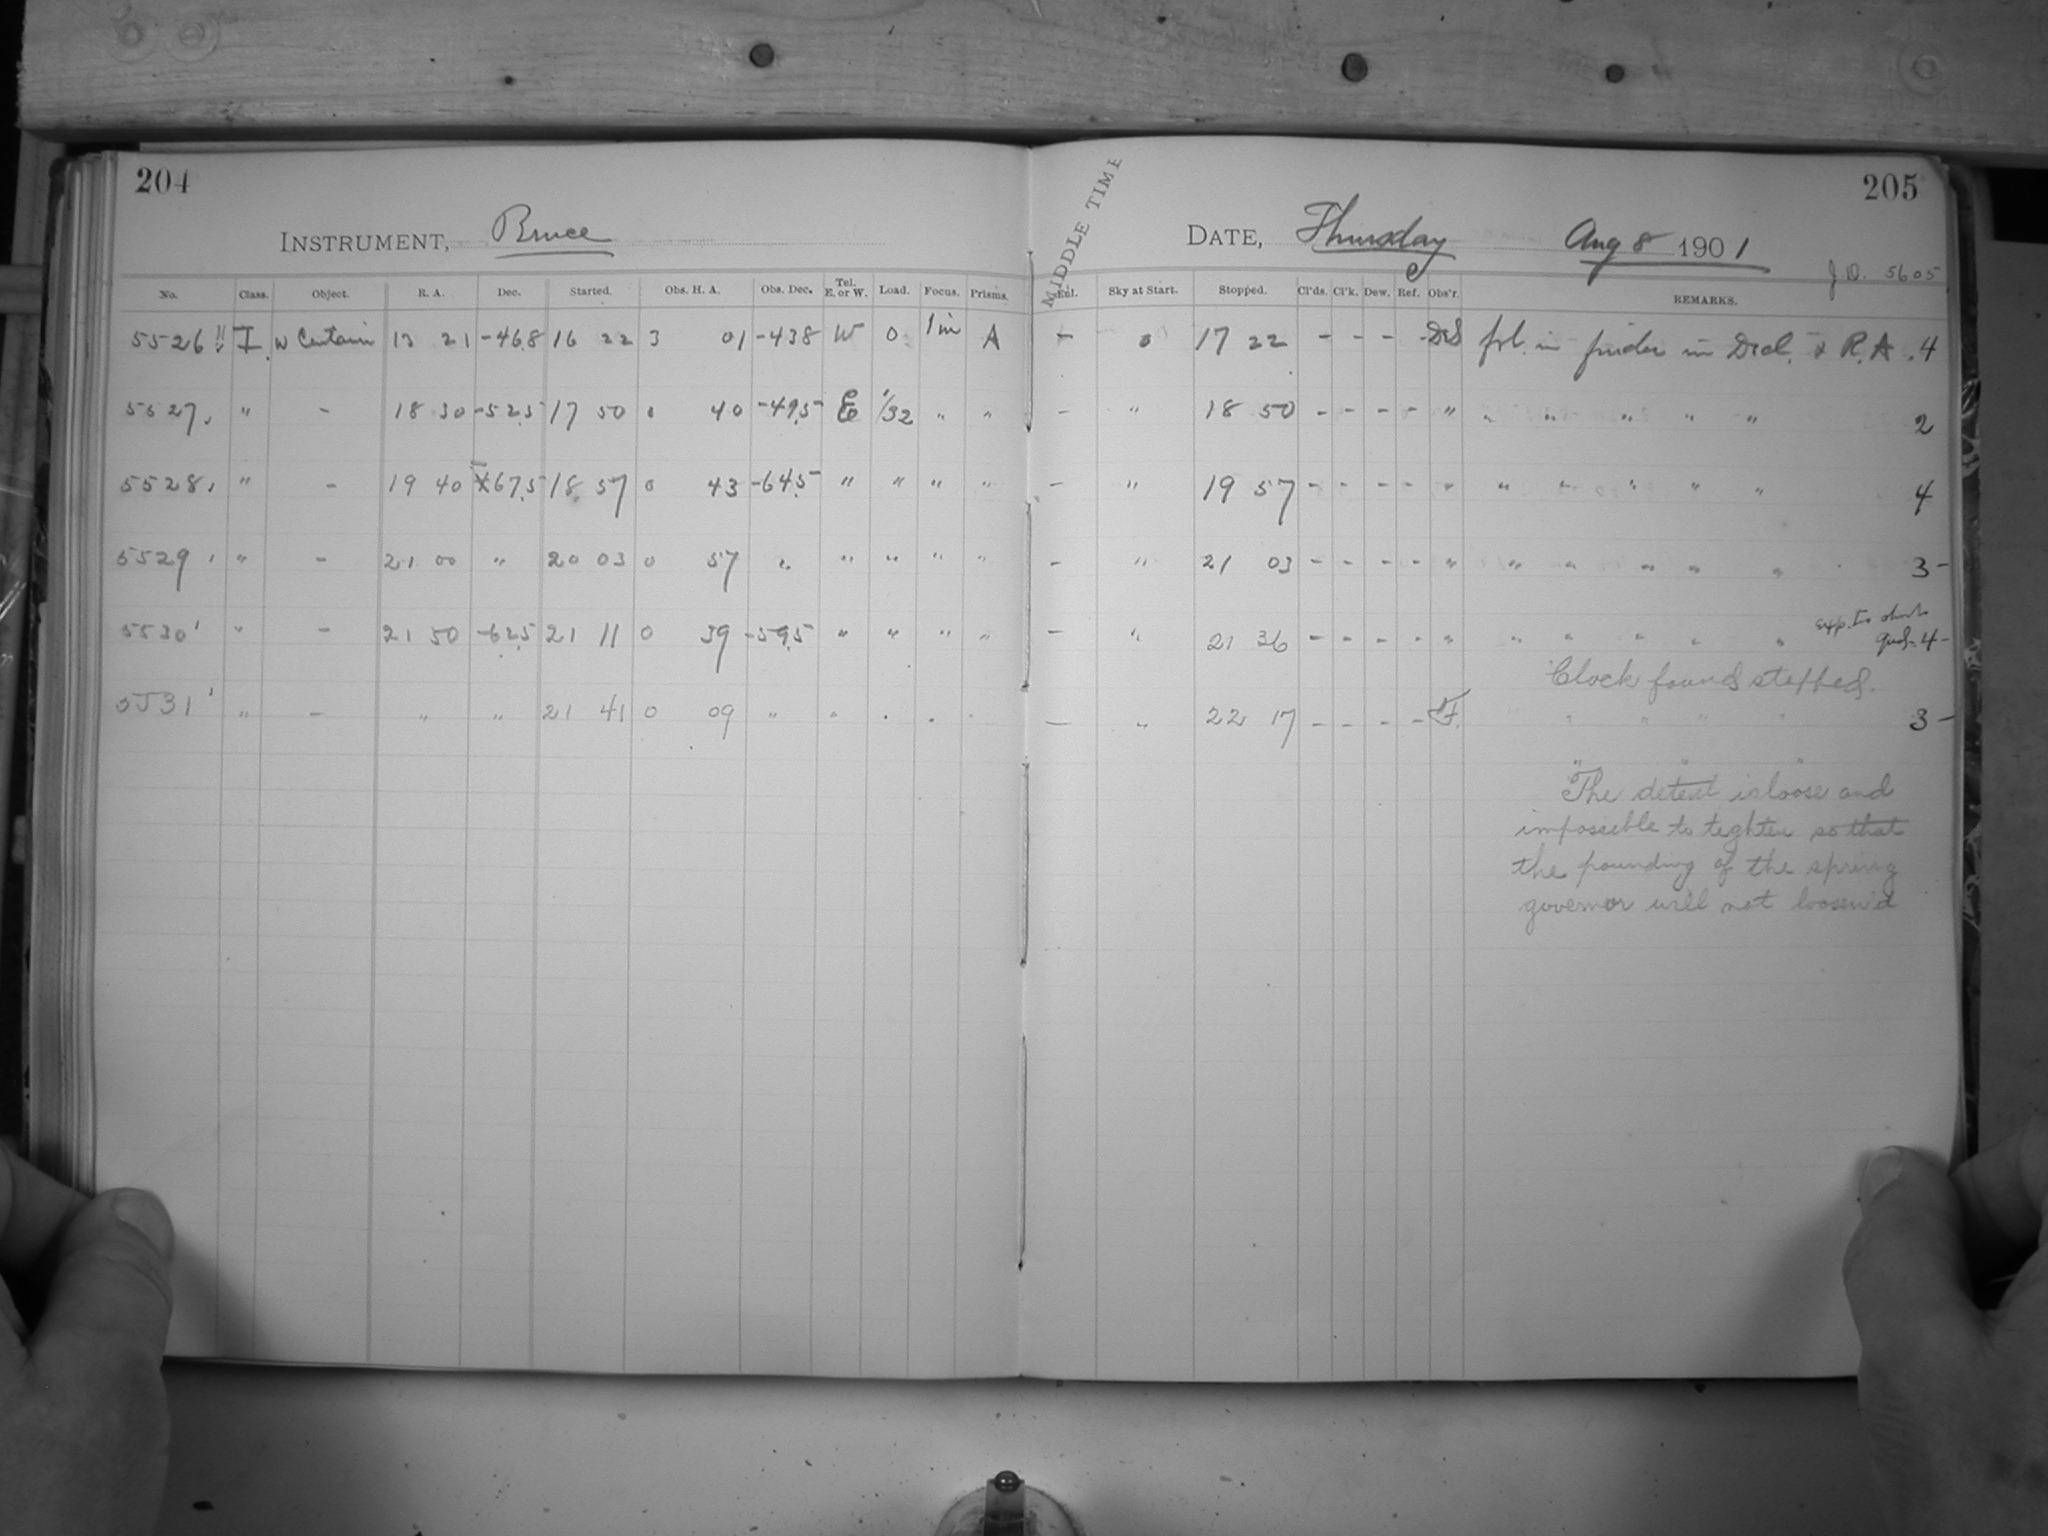 204
INSTRUMENT, Bruce
No. Class. Object. R. A. Dec. Started. Obs. H. A. Obs. Dec. Tel. E. or W. Load. Focus. Prisms.
5526 I w Centauri 13 21 -46.8 16 22 3 01 -43.8 W 0 1 in A
5527 " - 18 30 -52.5 17 50 0 40 -49.5 E 1/32 " "
5528 " - 19 40 -67.5 18 57 0 43 -64.5 " " " "
5529 " - 21 00 " 20 03 0 57 " " " " "
5530 " - 21 50 -62.5 21 11 0 39 -59.5 " " " "
5531 " - " " 21 41 0 09 " " " " "
MIDDLE TIME
205
DATE, Thursday Aug 8 1901
J.D. 5605
Sky at Start. Stopped. Cl'ds. Cl'k. Dew. Ref. Obs'r. REMARKS.
- 0 17 22 - - - - fol. in finder in Decl. & R.A. 4
- " 18 50 - - - - " " " " " " 2
- " 19 57 - - - - " " " " " " 4
- " 21 03 - - - - " " " " " " 3-
exp. too short
- " 21 36 - - - - " " " " " " 4-
Clock found stopped.
- " 22 17 - - - - " " " " 3-
" " "
The detent is loose and
impossible to tighten so that
the pounding of the spring
governor will not loosen'd